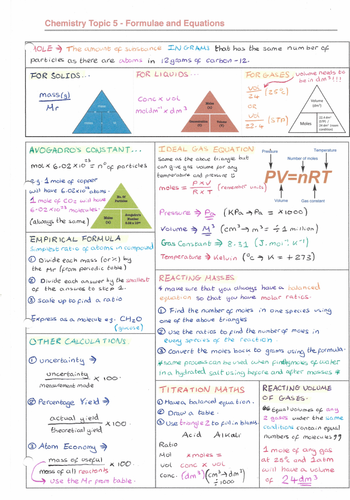 Chemistry Topic 5 - Formulae and Equations
MOLE → The amount of substance IN GRAMS that has the same number of
particles as there are atoms in 12grams of carbon-12.
FOR SOLIDS...
mass(g)
Mr
FOR LIQUIDS...
Conc x vol
moldm⁻³ dm³
FOR GASES
volume needs to
be in dm³!!!
vol
24
(25°C)
OR
vol
22.4
Volume
(dm³)
Moles
AVOGADRO'S CONSTANT...
mol x 6.02x10²³ = n° of particles
e.g 1 mole of copper
will have 6.02x10²³ atoms.
1 mole of CO₂ will have
6.02x10²³ molecules
(always the same)
IDEAL GAS EQUATION
Same as the above triangle but
can give gas volume for any
temperature and pressure
moles = P x V
R x T
(remember units)
Pressure
Volume
Number of moles
Temperature
PV=nRT
Pressure → Pa (KPa → Pa = x1000)
Volume → M³ (cm³ → m³ = ÷ 1 million)
Gas Constant → 8.31 (J.mol⁻¹ K⁻¹)
Temperature → Kelvin (°C → K = +273)
EMPIRICAL FORMULA
Simplest ratio of atoms in compound
① Divide each mass (or %) by
the Mr (from periodic table)
② Divide each answer by the smallest
of the answers to step 1
③ Scale up to find a ratio
Express as a molecule eg. CH₂O
(glucose)
REACTING MASSES
* make sure that you always have a balanced
equation so that you have molar ratios.
① Find the number of moles in one species using
one of the above triangles
② Use the ratios to find the number of moles in
every species of the reaction.
③ Convert the moles back to grams using the formula.
*same process can be used when finding moles of water
in a hydrated salt using before and after masses *
OTHER CALCULATIONS.
① Uncertainty →
uncertainty
measurement made
x 100.
② Percentage Yield →
actual yield
theoretical yield
x 100
③ Atom Economy →
mass of useful
mass of all reactants
x 100
→ Use the Mr from table.
TITRATION MATHS
① Have a balanced equation.
② Draw a table.
③ Use triangle 2 to fill in blanks.
Acid Alkali
Ratio
Mol
vol
conc.
REACTING VOLUME
OF GASES:
Equal volumes of any
2 gases under the same
conditions contain equal
numbers of molecules
1 mole of any gas
at 25°C and 1atm
will have a volume
of 24dm³